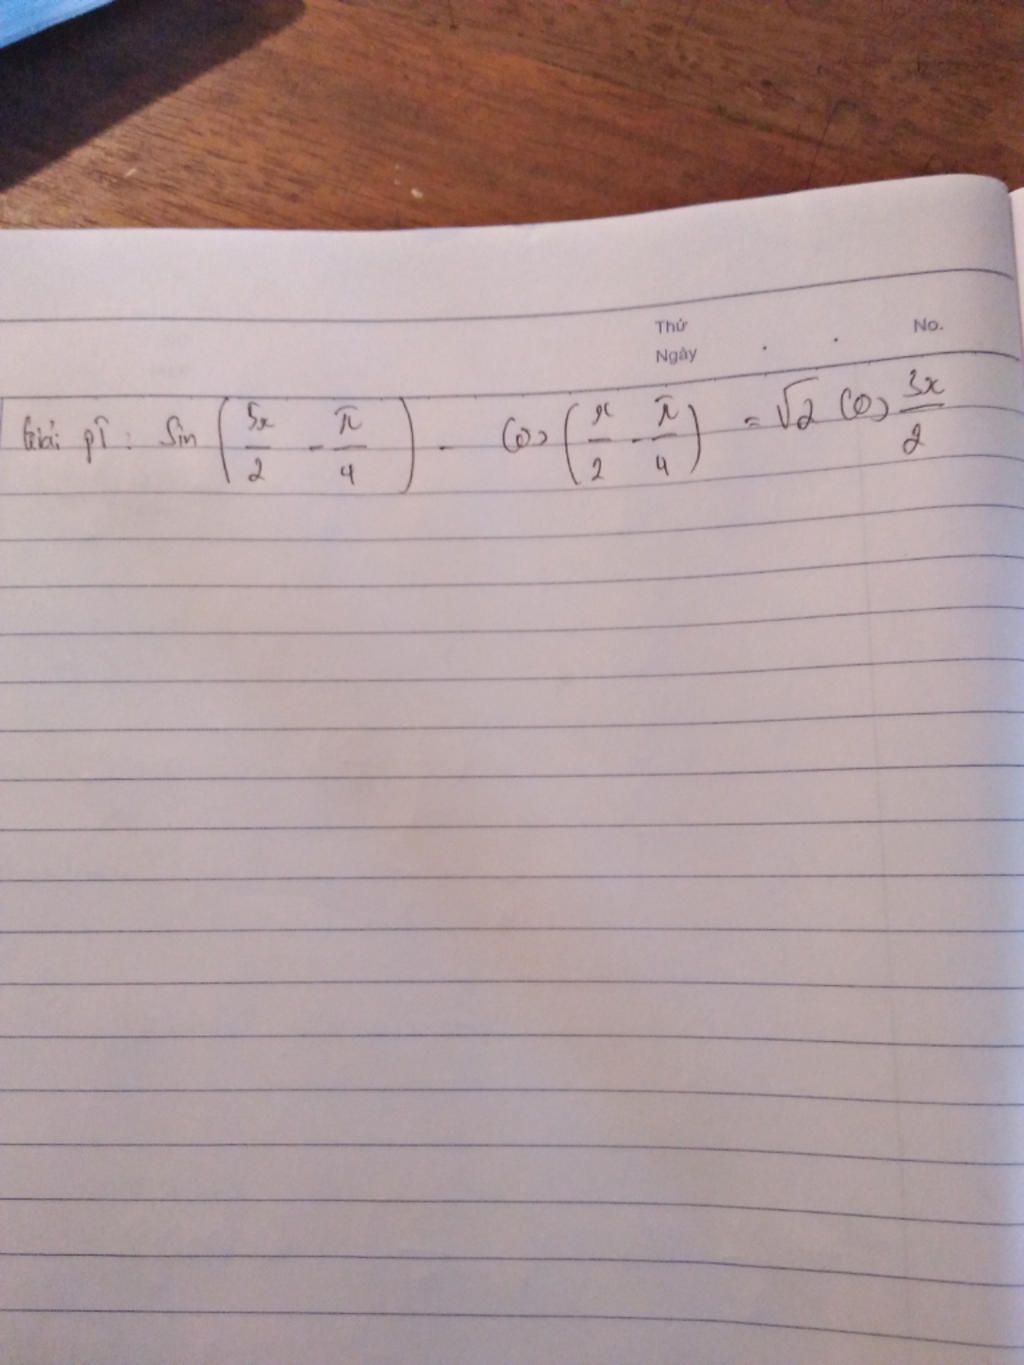 Thứ No.
Ngày
Giải pt : Sin (5x/2 - π/4) - Cos (x/2 - π/4) = √2 Cos 3x/2